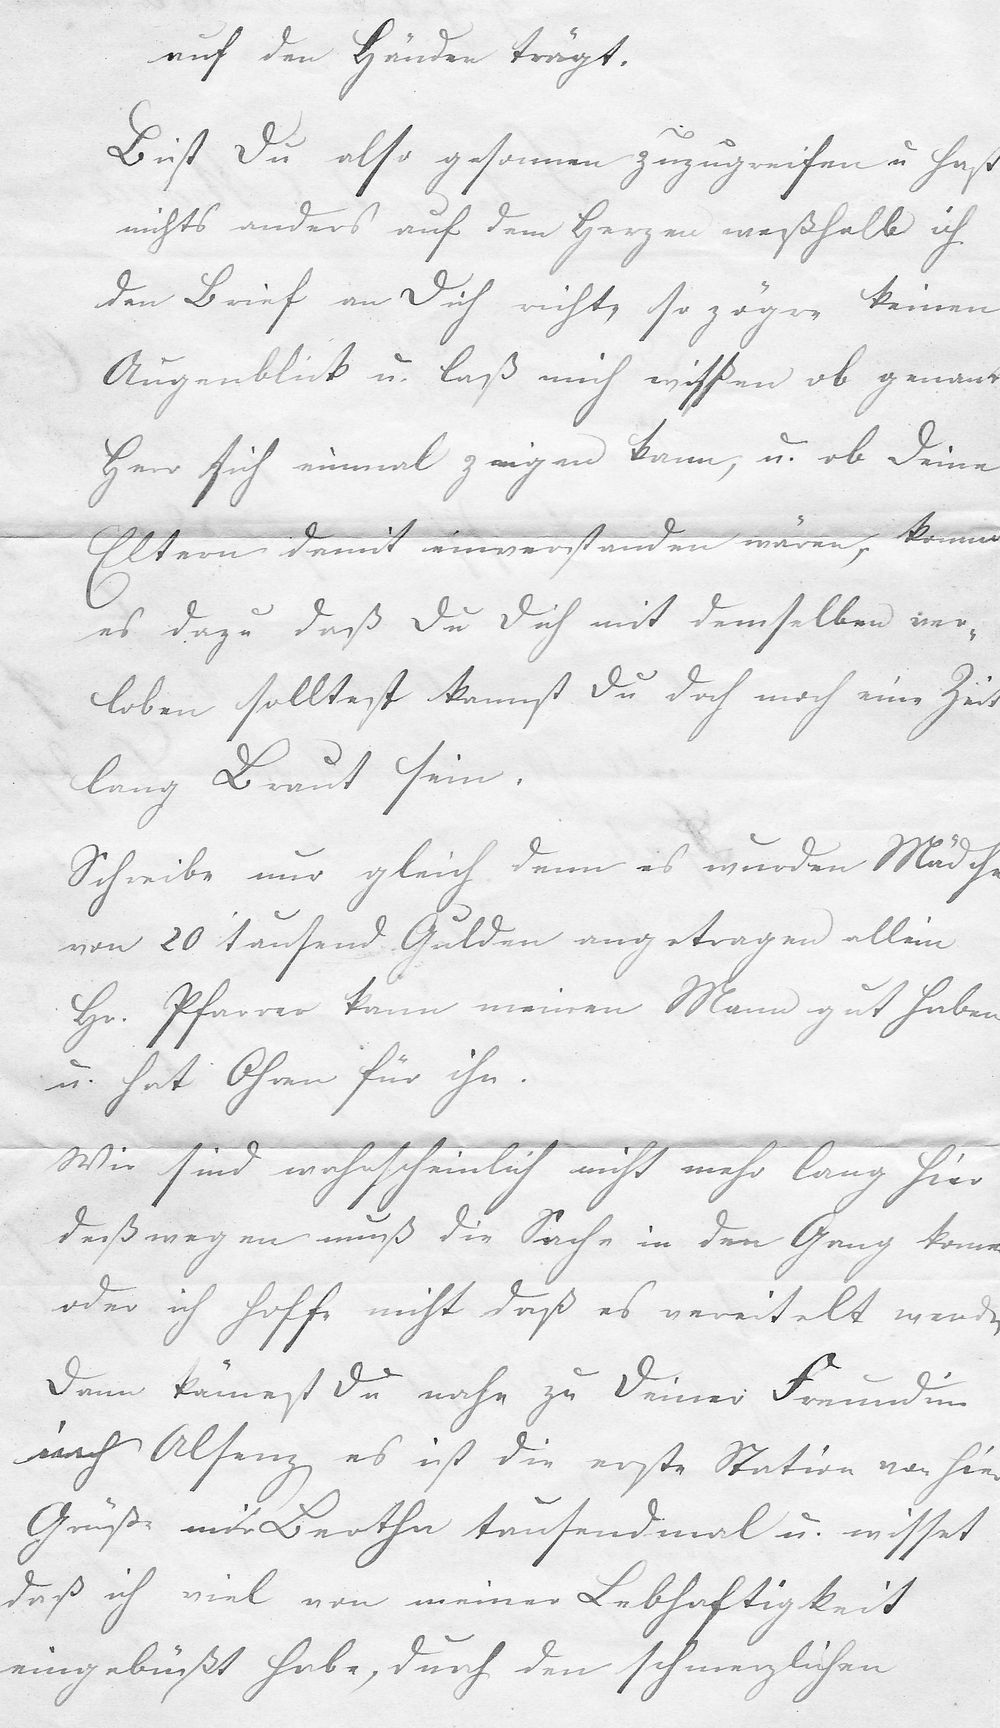 auf den Händen trägt.
Bist Du also gesonnen zuzugreifen u hast
nichts anders auf dem Herzen weßhalb ich
den Brief an Dich richte, so zögre keinen
Augenblick u. laß mich wißen ob genant
Herr sich einmal zeigen kann, u. ob Deine
Eltern damit einverstanden wären, komm
es dazu daß Du Dich mit demselben ver-
loben solltest kannst Du doch noch eine Zeit
lang Braut sein.
Schreibe nur gleich denn es wurden Mädche
von 20 tausend Gulden angetragen allein
Hr. Pfarrer kann meinen Mann gut haben
u. hat Ohren für ihn.
Wir sind wahrscheinlich nicht mehr lang hier
deßwegen muß die Sache in den Gang kome
oder ich hoffe nicht daß es vereitelt werde
Dann kämest Du nahe zu Deiner Freundin
nach Alsenz es ist die erste Station von hier
Grüße mir Bertha tausendmal u. wisset
daß ich viel von meiner Lebhaftigkeit
eingebüßt habe, durch den schmerzlichen